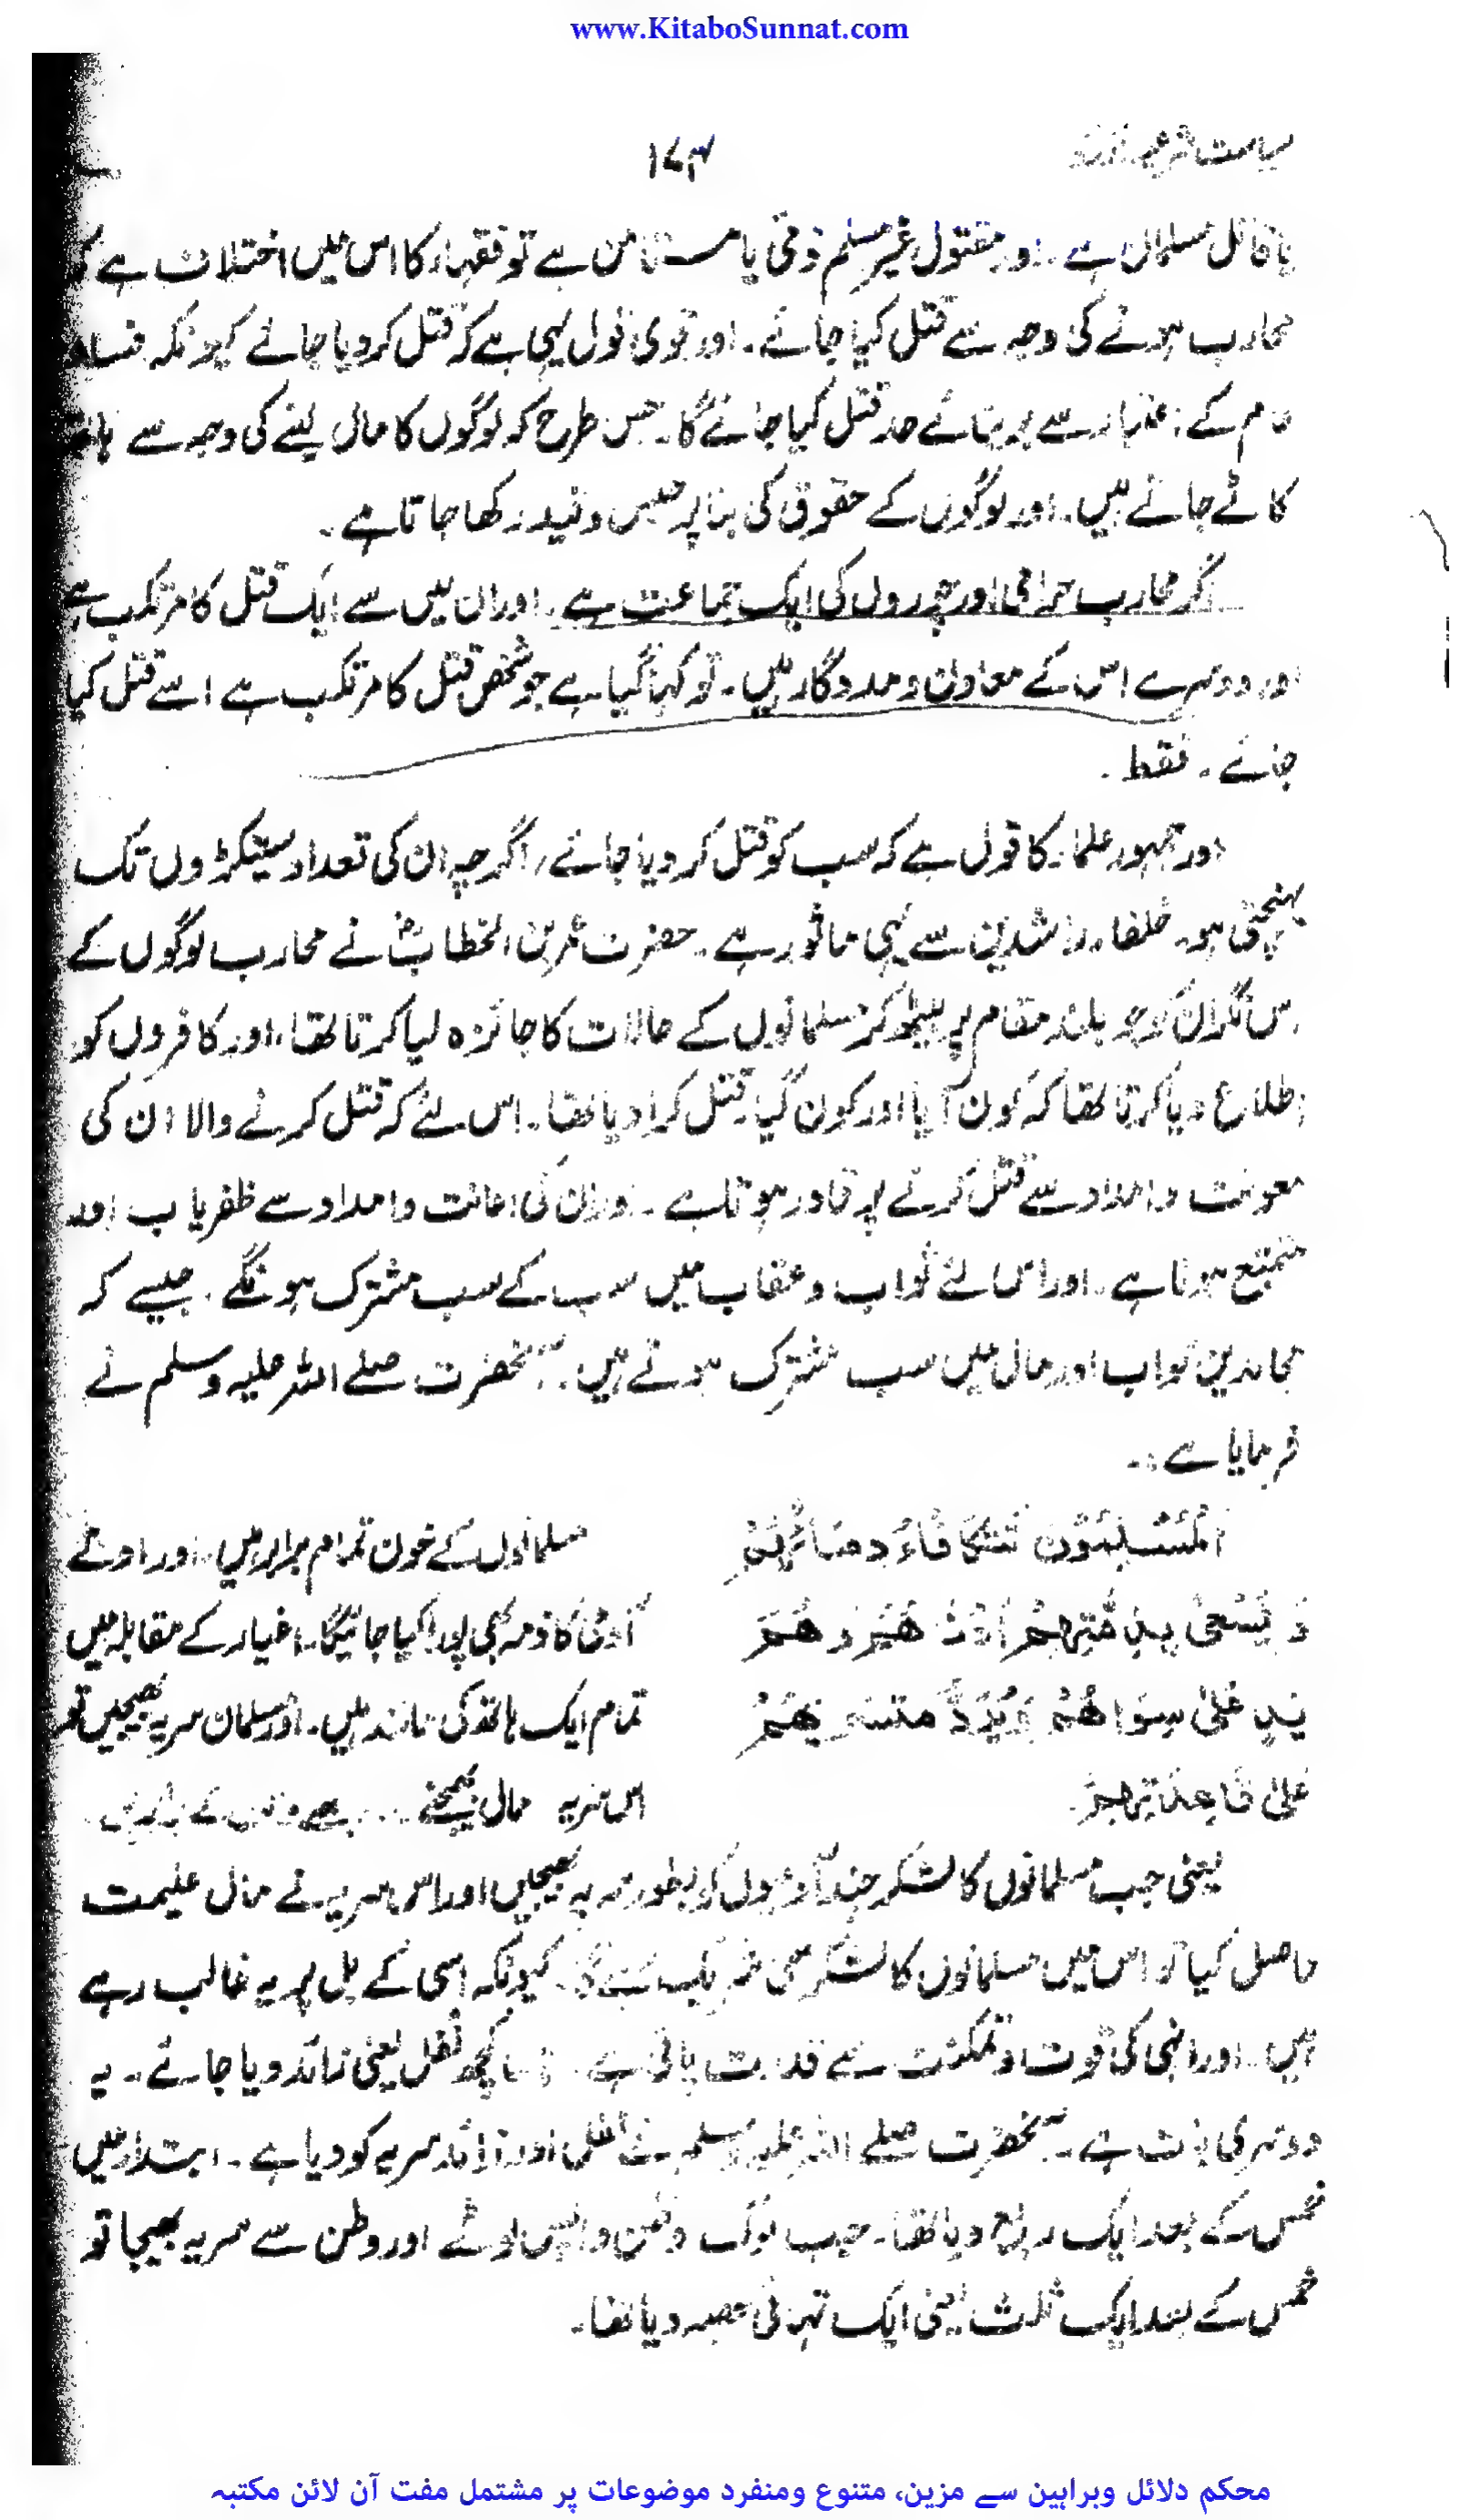 www.KitaboSunnat.com
۱۷۴
سیاست شرعیہ اردو
یا قاتل مسلمان ہے۔ اور مقتول غیر مسلم ذمی یا مستامن ہے تو فقہاء کا اس میں اختلاف ہے کہ
محارب ہونے کی وجہ سے قتل کیا جائے۔ اور قوی قول یہی ہے کہ قتل کر دیا جائے کیونکہ فساد
عام کے اعتبار سے بربنائے حد قتل کیا جائے گا۔ جس طرح کہ لوگوں کا مال لینے کی وجہ سے ہاتھ
کاٹے جاتے ہیں۔ اور لوگوں کے حقوق کی بنا پر حبس و قید رکھا جاتا ہے۔
اگر محارب حرامی اور چوروں کی ایک جماعت ہے۔ اور ان میں سے ایک قتل کا مرتکب ہے
اور دوسرے اس کے معاون و مددگار ہیں۔ تو کہا گیا ہے جو شخص قتل کا مرتکب ہے اسے قتل کیا
جائے۔ فقط۔
اور جمہور علماء کا قول ہے کہ سب کو قتل کر دیا جائے، اگرچہ ان کی تعداد سینکڑوں تک
پہنچتی ہو۔ خلفاء راشدین سے یہی ماثور ہے۔ حضرت عمر بن الخطابؓ نے محارب لوگوں کے
اس نگران کو جو بلند مقام پر بیٹھ کر مسلمانوں کے حالات کا جائزہ لیا کرتا تھا، اور کافروں کو
اطلاع دیا کرتا تھا کہ کون آیا اور کون گیا۔ قتل کرا دیا تھا۔ اس لئے کہ قتل کرنے والا ان کی
معونت و امداد سے قتل کرنے پر قادر ہوتا ہے۔ اور ان کی اعانت و امداد سے ظفریاب اور
متمتع ہوتا ہے۔ اور اس لئے ثواب و عقاب میں سب کے سب مشترک ہونگے۔ جیسے کہ
مجاہدین ثواب اور مال میں سب مشترک ہوتے ہیں۔ آنحضرت صلے اللہ علیہ وسلم نے
فرمایا ہے:۔
اَلْمُسْلِمُوْنَ تَتَكَافَاءُ دِمَائُهُمْ
وَ يَسْعٰى بِذِمَّتِهِمْ اَدْنَاهُمْ وَهُمْ
يَدٌ عَلٰى سِوَاهُمْ وَيُرَدُّ مُتَسَرِّيْهُمْ
عَلٰى قَاعِدَتِهِمْ
مسلمانوں کے خون تمام برابر ہیں۔ اور ادنے
آدمی کا ذمہ بھی پورا کیا جائیگا۔ اغیار کے مقابلہ میں
تمام ایک ہاتھ کی مانند ہیں۔ اور مسلمان سریہ بھیجیں تو
اس سریہ مال
یعنی جب مسلمانوں کا لشکر چند آدمیوں کو بطور سریہ بھیجیں اور اس سریہ نے مال غنیمت
حاصل کیا تو اس میں مسلمانوں کا لشکر بھی شریک ہے کیونکہ اسی کے بل پر یہ غالب رہے
ہیں۔ اور انہی کی قوت و تمکنت سے قدرت پائی ہے۔ کچھ نفل یعنی زائد دیا جائے۔ یہ
دوسری بات ہے۔ آنحضرت صلے اللہ علیہ وسلم نے نفل اور زائد سریہ کو دیا ہے۔ ابتداء میں
خمس کے بعد ایک ربع دیا تھا۔ جب لوگ وطن واپس لوٹے اور وطن سے سریہ بھیجا تو
خمس کے بعد ایک ثلث یعنی ایک تہائی حصہ دیا تھا۔
محکم دلائل وبراہین سے مزین، متنوع ومنفرد موضوعات پر مشتمل مفت آن لائن مکتبہ